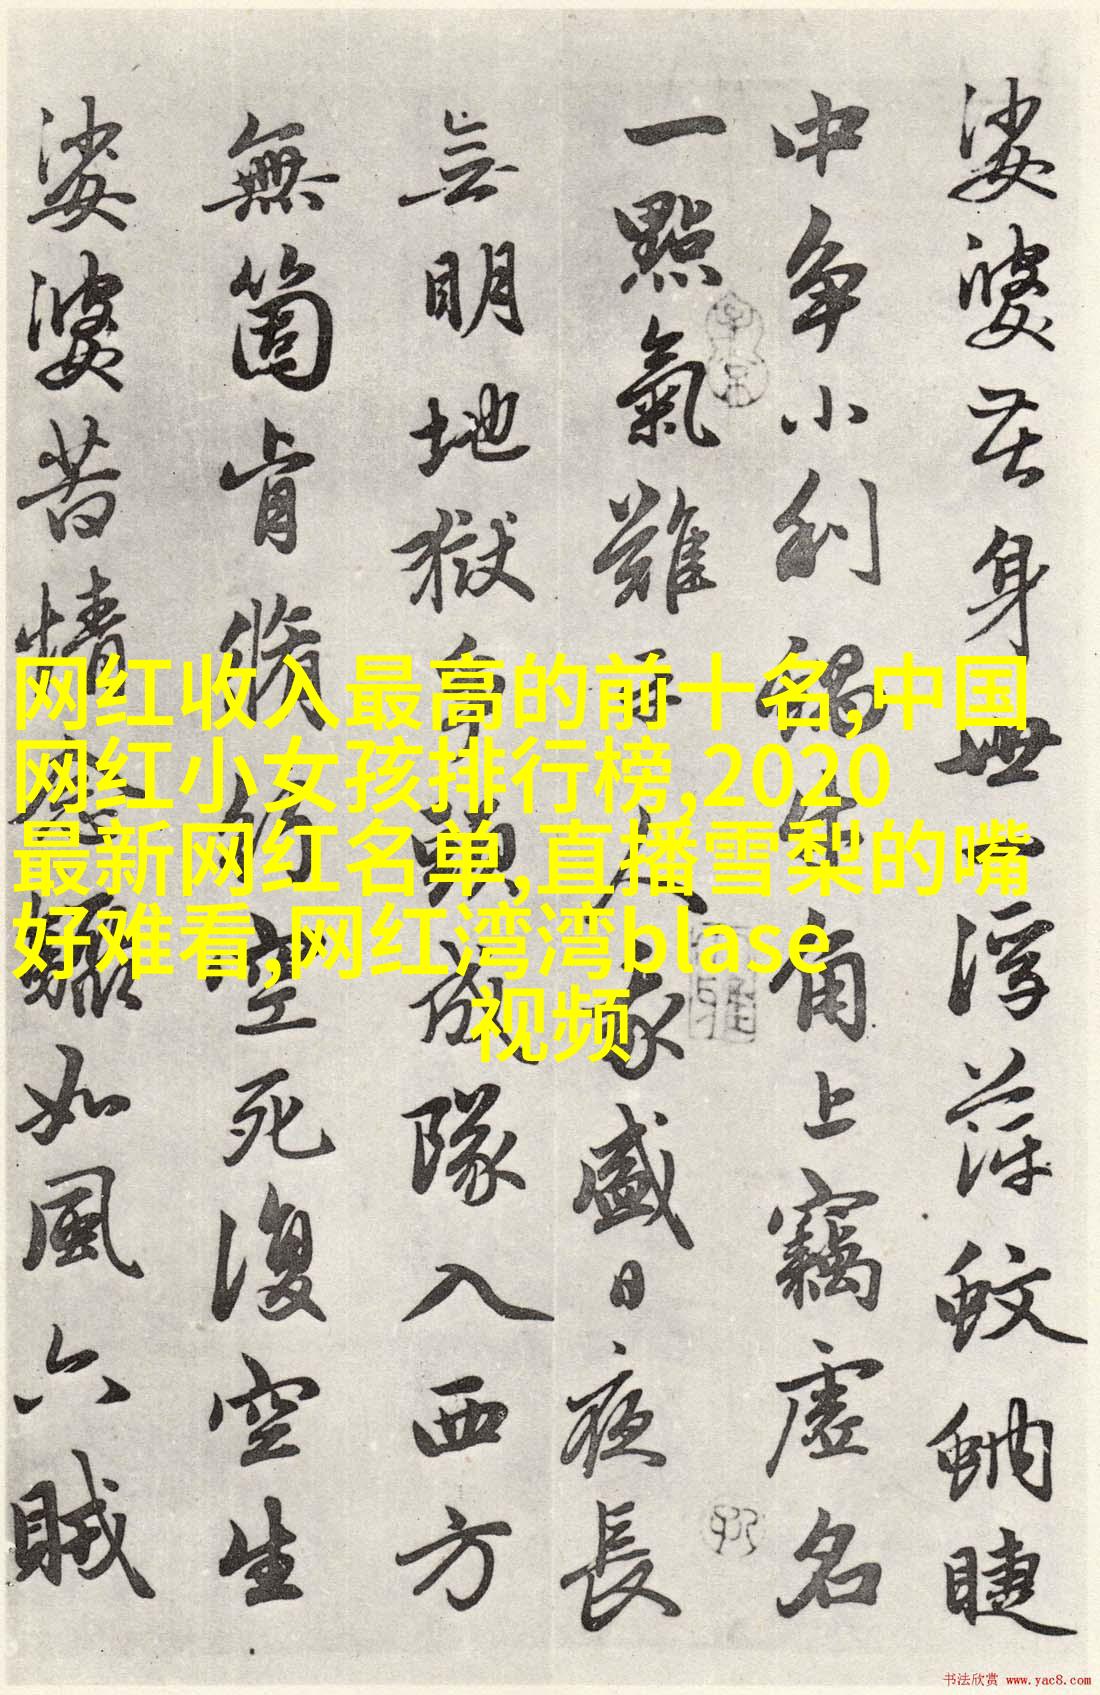 娑婆苦身世一浮萍蚊蚋睫
中争小利蝸牛角上竊虛名
一點氣難平人我盛日夜長
无明地獄爭頭成隊入西方
無箇肯脩行空死復空生
娑婆苦情念驟如風六賊
网红收入最高的前十名,中国
网红小女孩排行榜,2020
最新网红名单,直播雪梨的嘴
好难看,网红湾湾blase
视频
书法欣赏 www.yac8.com